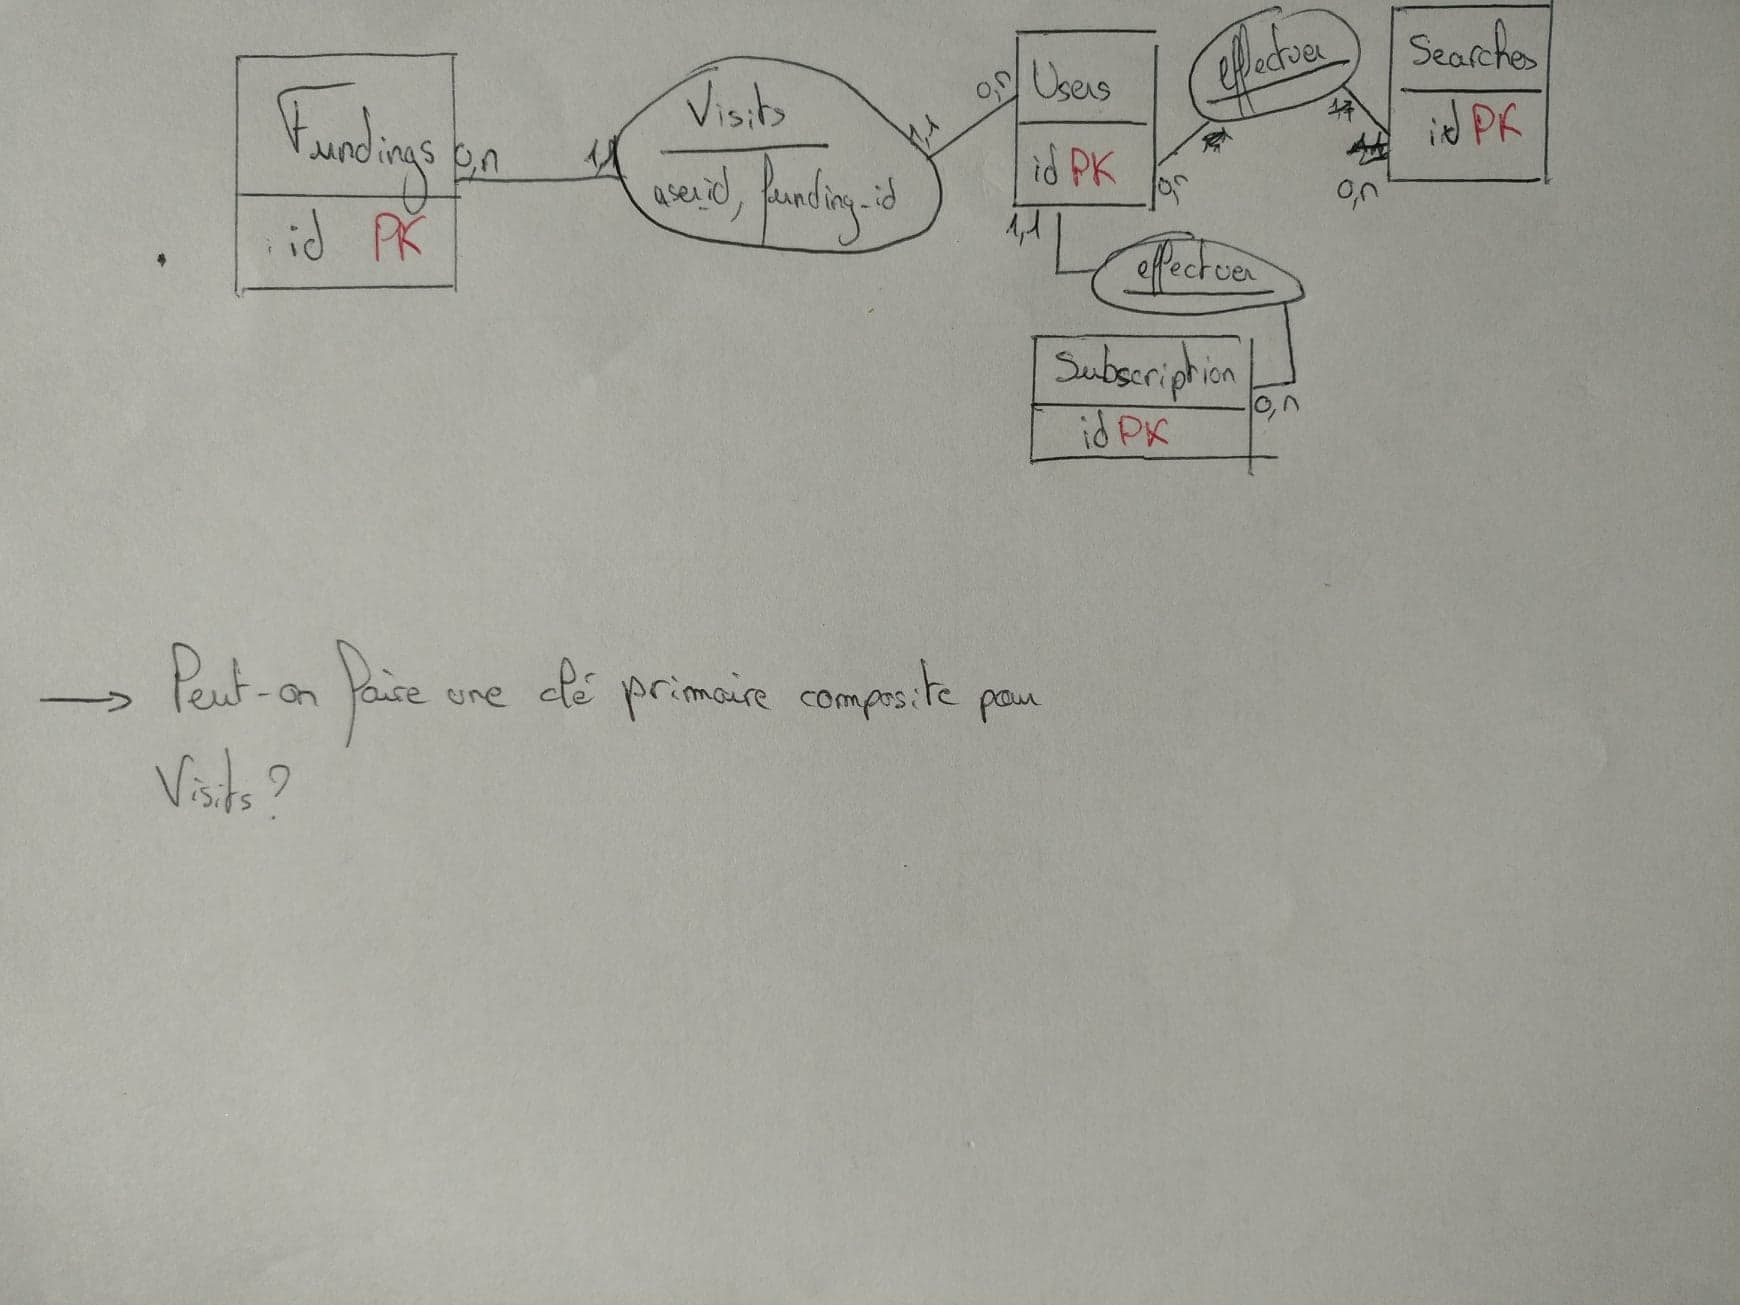 Fundings
id PK
0,n
1,1
Visits
user_id, funding_id
1,1
0,n
Users
id PK
0,n
1,1
effectuer
Searches
id PK
0,n
effectuer
Subscription
id PK
0,n
→ Peut-on faire une clé primaire composite pour
Visits?